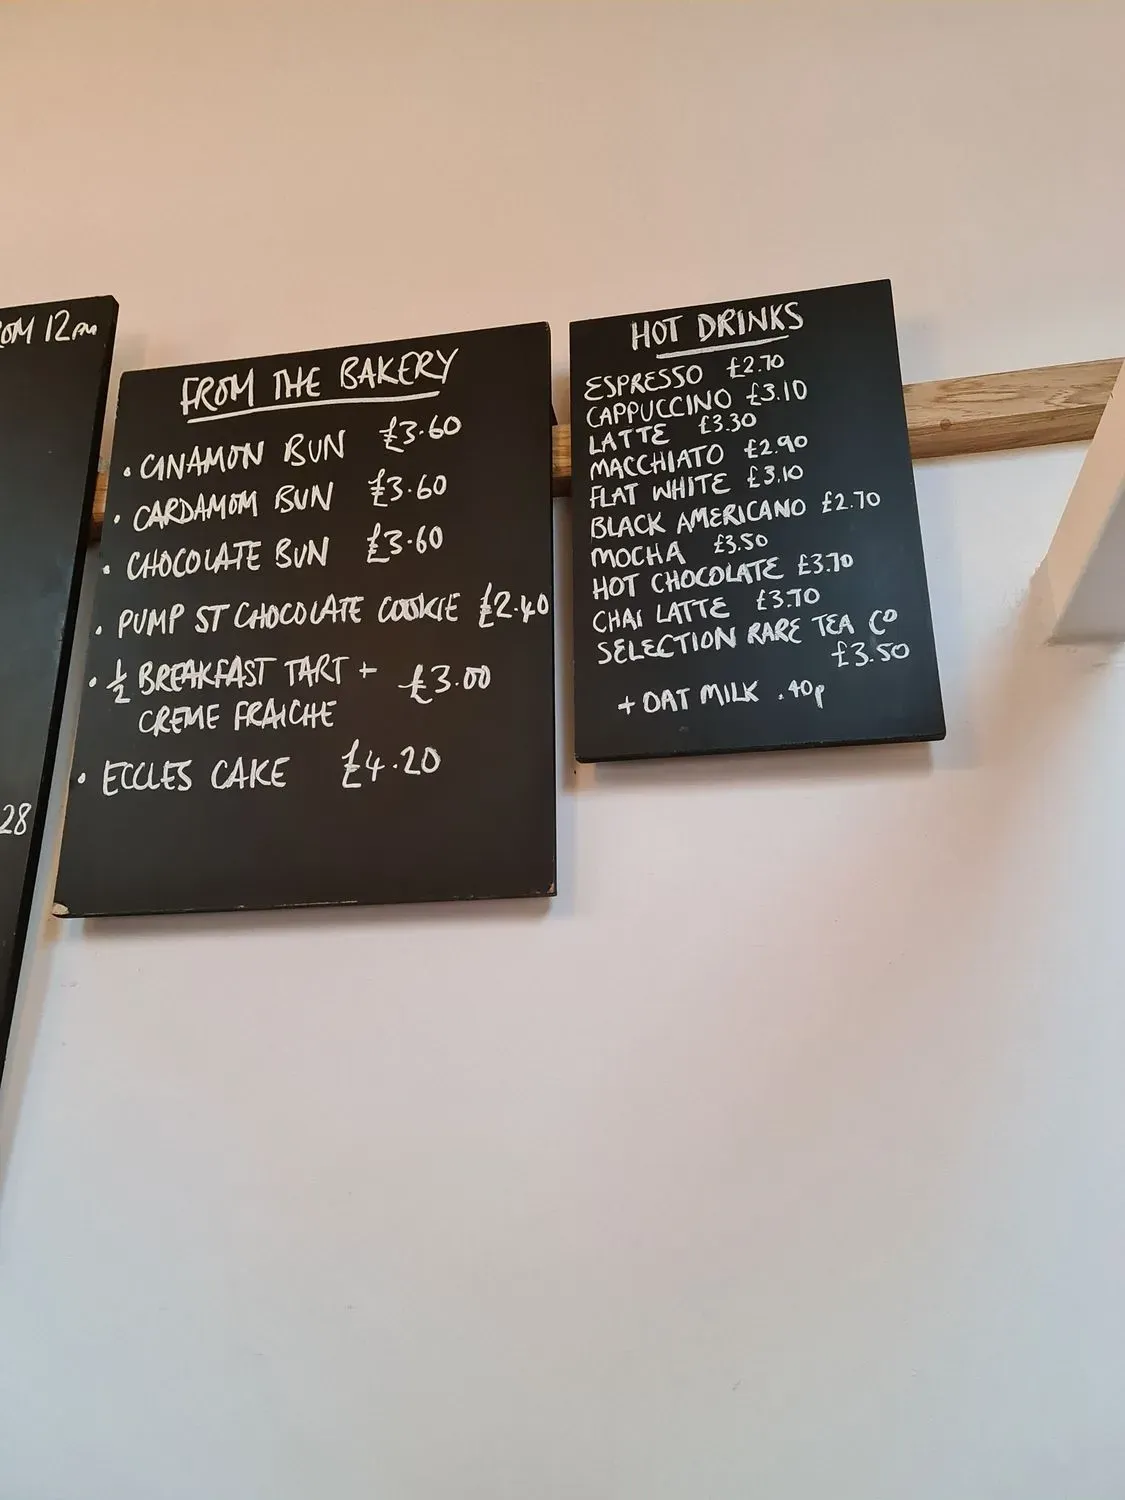 12pm
28
FROM THE BAKERY
• CINAMON BUN £3.60
• CARDAMOM BUN £3.60
• CHOCOLATE BUN £3.60
• PUMP ST CHOCOLATE COOKIE £2.40
• ½ BREAKFAST TART + £3.00
CREME FRAICHE
• ECCLES CAKE £4.20
HOT DRINKS
ESPRESSO £2.70
CAPPUCCINO £3.10
LATTE £3.30
MACCHIATO £2.90
FLAT WHITE £3.10
BLACK AMERICANO £2.70
MOCHA £3.50
HOT CHOCOLATE £3.70
CHAI LATTE £3.70
SELECTION RARE TEA CO
£3.50
+ OAT MILK .40p